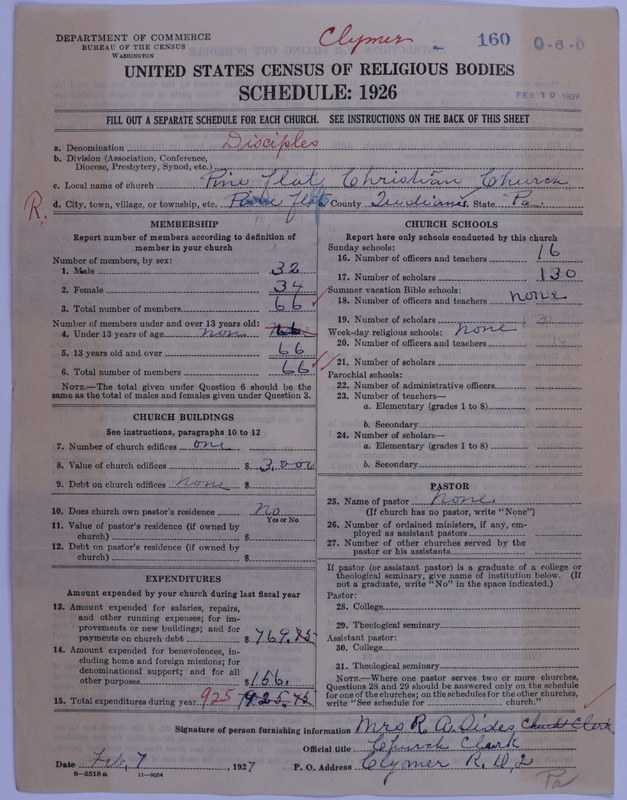 DEPARTMENT OF COMMERCE
BUREAU OF THE CENSUS
WASHINGTON
Clymer
160
0-6-0
UNITED STATES CENSUS OF RELIGIOUS BODIES
SCHEDULE: 1926
FEB 10 1927
FILL OUT A SEPARATE SCHEDULE FOR EACH CHURCH. SEE INSTRUCTIONS ON THE BACK OF THIS SHEET
a. Denomination Disciples
b. Division (Association, Conference,
Diocese, Presbytery, Synod, etc.)
c. Local name of church Pine flat Christian Church
R.
d. City, town, village, or township, etc. Pine flat County Indiana State Pa
MEMBERSHIP
Report number of members according to definition of
member in your church
Number of members, by sex:
1. Male 32
2. Female 34
3. Total number of members 66
Number of members under and over 13 years old:
4. Under 13 years of age none 66
5. 13 years old and over 66
6. Total number of members 66
NOTE.—The total given under Question 6 should be the
same as the total of males and females given under Question 3.
CHURCH BUILDINGS
See instructions, paragraphs 10 to 12
7. Number of church edifices one
8. Value of church edifices $ 3,000
9. Debt on church edifices none $
10. Does church own pastor's residence No
Yes or No
11. Value of pastor's residence (if owned by
church) $
12. Debt on pastor's residence (if owned by
church) $
EXPENDITURES
Amount expended by your church during last fiscal year
13. Amount expended for salaries, repairs,
and other running expenses; for im-
provements or new buildings; and for
payments on church debt $ 769.75
14. Amount expended for benevolences, in-
cluding home and foreign missions; for
denominational support; and for all
other purposes $ 156.
15. Total expenditures during year 925 925.75
CHURCH SCHOOLS
Report here only schools conducted by this church
Sunday schools:
16. Number of officers and teachers 16
17. Number of scholars 130
Summer vacation Bible schools:
18. Number of officers and teachers none
19. Number of scholars
Week-day religious schools: none
20. Number of officers and teachers
21. Number of scholars
Parochial schools:
22. Number of administrative officers
23. Number of teachers—
a. Elementary (grades 1 to 8)
b. Secondary
24. Number of scholars—
a. Elementary (grades 1 to 8)
b. Secondary
PASTOR
25. Name of pastor none
(If church has no pastor, write "None")
26. Number of ordained ministers, if any, em-
ployed as assistant pastors
27. Number of other churches served by the
pastor or his assistants
If pastor (or assistant pastor) is a graduate of a college or
theological seminary, give name of institution below. (If
not a graduate, write "No" in the space indicated.)
Pastor:
28. College
29. Theological seminary
Assistant pastor:
30. College
31. Theological seminary
NOTE.—Where one pastor serves two or more churches,
Questions 28 and 29 should be answered only on the schedule
for one of the churches; on the schedules for the other churches,
write "See schedule for church."
Signature of person furnishing information Mrs R. A. Church Clerk
Official title Church Clerk
Date Feb, 7, 1927
P. O. Address Clymer R. D, 2
Pa
8—5518a 11—9054